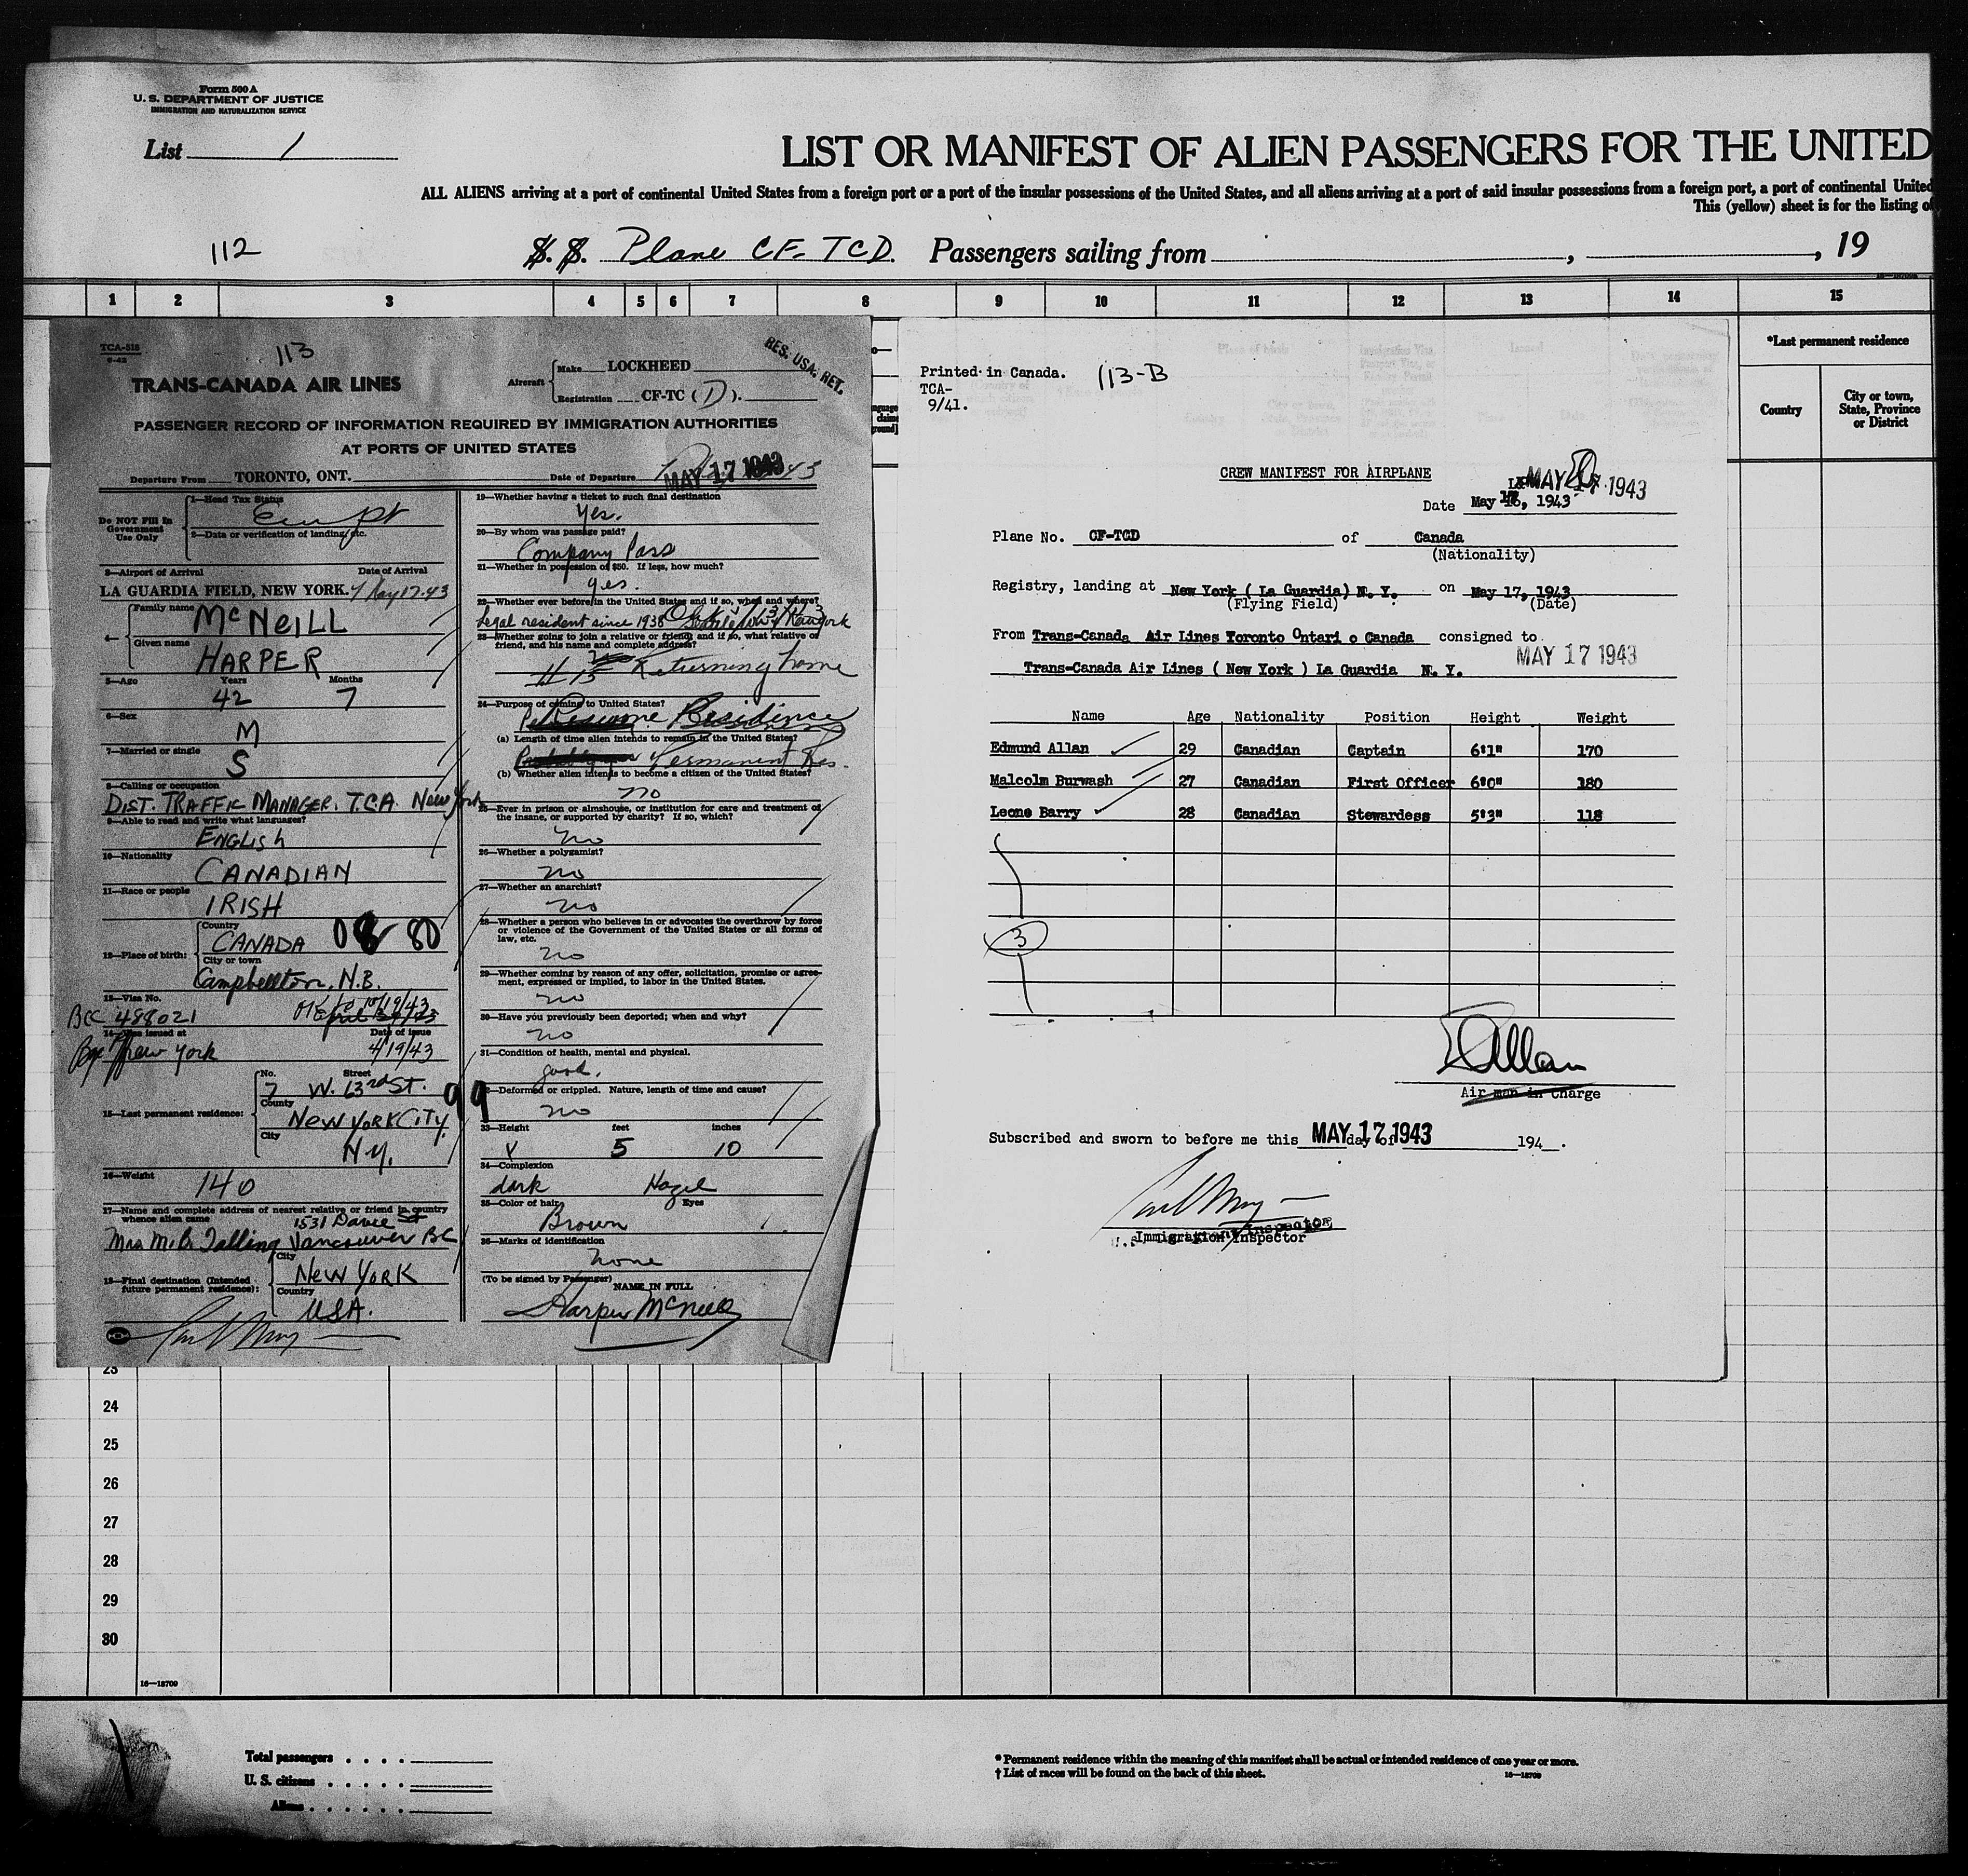 Form 500 A
U. S. DEPARTMENT OF JUSTICE
IMMIGRATION AND NATURALIZATION SERVICE
List 1
LIST OR MANIFEST OF ALIEN PASSENGERS FOR THE UNITED
ALL ALIENS arriving at a port of continental United States from a foreign port or a port of the insular possessions of the United States, and all aliens arriving at a port of said insular possessions from a foreign port, a port of continental United
This (yellow) sheet is for the listing of
112
S. S. Plane CF-TCD. Passengers sailing from , , 19
1 2 3 4 5 6 7 8 9 10 11 12 13 14 15
*Last permanent residence
Country
City or town, State, Province or District
TCA-518
6-42
113
RES. USA. RET.
TRANS-CANADA AIR LINES
Aircraft
Make LOCKHEED
Registration CF-TC (D).
PASSENGER RECORD OF INFORMATION REQUIRED BY IMMIGRATION AUTHORITIES
AT PORTS OF UNITED STATES
Departure From TORONTO, ONT. Date of Departure MAY 17 1943
Do NOT Fill In Government Use Only
1—Head Tax Status
2—Data or verification of landing, etc.
3—Airport of Arrival Date of Arrival
LA GUARDIA FIELD, NEW YORK. May 17-43
4—
Family name McNEILL
Given name HARPER
5—Age Years 42 Months 7
6—Sex
M
7—Married or single
S
8—Calling or occupation
DIST. TRAFFIC MANAGER. T.C.A. New York
9—Able to read and write what languages?
ENGLISH
10—Nationality
CANADIAN
11—Race or people
IRISH
12—Place of birth:
Country
CANADA 08 80
City or town
Campbellton, N.B.
13—Visa No.
BCC 498021
14—Visa issued at Date of issue
New York 4/19/43
15—Last permanent residence:
No. Street
7 W. 63rd St. 99
County
NEW YORK CITY
City
N.Y.
16—Weight
140
17—Name and complete address of nearest relative or friend in country whence alien came
1531 Davie St
Mrs M.B. Talling Vancouver BC
18—Final destination (Intended future permanent residence):
City
NEW YORK
Country
USA.
19—Whether having a ticket to such final destination
Yes.
20—By whom was passage paid?
Company Pass
21—Whether in possession of $50. If less, how much?
yes.
22—Whether ever before in the United States and if so, when and where?
Legal resident since 1938 New York
23—Whether going to join a relative or friend and if so, what relative or friend, and his name and complete address?
Returning home
24—Purpose of coming to United States?
Resume Residence
(a) Length of time alien intends to remain in the United States?
Permanent Res.
(b) Whether alien intends to become a citizen of the United States?
no
25—Ever in prison or almshouse, or institution for care and treatment of the insane, or supported by charity? If so, which?
no
26—Whether a polygamist?
no
27—Whether an anarchist?
no
28—Whether a person who believes in or advocates the overthrow by force or violence of the Government of the United States or all forms of law, etc.
no
29—Whether coming by reason of any offer, solicitation, promise or agreement, expressed or implied, to labor in the United States.
no
30—Have you previously been deported; when and why?
no
31—Condition of health, mental and physical.
good.
32—Deformed or crippled. Nature, length of time and cause?
no
33—Height feet inches
5 10
34—Complexion
dark Hazel
35—Color of hair Eyes
Brown
36—Marks of identification
none
(To be signed by Passenger) NAME IN FULL
Harper McNeill
Printed in Canada.
113-B
TCA-
9/41.
CREW MANIFEST FOR AIRPLANE
MAY 17 1943
Date May 16, 1943
Plane No. CF-TCD of Canada
(Nationality)
Registry, landing at New York ( La Guardia) N. Y. on May 17, 1943
(Flying Field) (Date)
From Trans-Canada Air Lines Toronto Ontari o Canada consigned to
MAY 17 1943
Trans-Canada Air Lines ( New York ) La Guardia N. Y.
Name Age Nationality Position Height Weight
Edmund Allan 29 Canadian Captain 6'1" 170
Malcolm Burwash 27 Canadian First Officer 6'0" 180
Leone Barry 28 Canadian Stewardess 5'3" 118
3
EAllan
Air man in Charge
Subscribed and sworn to before me this MAY 17 1943 day of 194 .
Immigration Inspector
23
24
25
26
27
28
29
30
16—18709
Total passengers . . . .
U. S. citizens . . . . .
Aliens . . . . . .
* Permanent residence within the meaning of this manifest shall be actual or intended residence of one year or more.
† List of races will be found on the back of this sheet.
16—18709